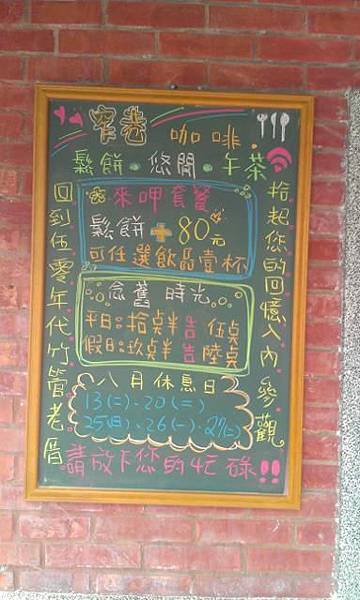 窄巷 咖啡
鬆餅·悠閒·午茶
拾起您的回憶入內參觀
來呷套餐
鬆餅+80元
可任選飲品壹杯
念舊時光
平日:拾點半 伍點
假日:玖點半 陸點
八月休息日
13(二)、20(二)
25(日)、26(一)、27(二)
回到伍零年代竹管老厝
請放下您的忙碌!!